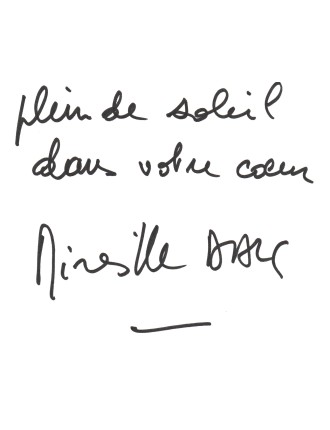 plein de soleil
dans votre cœur
Mireille DARC